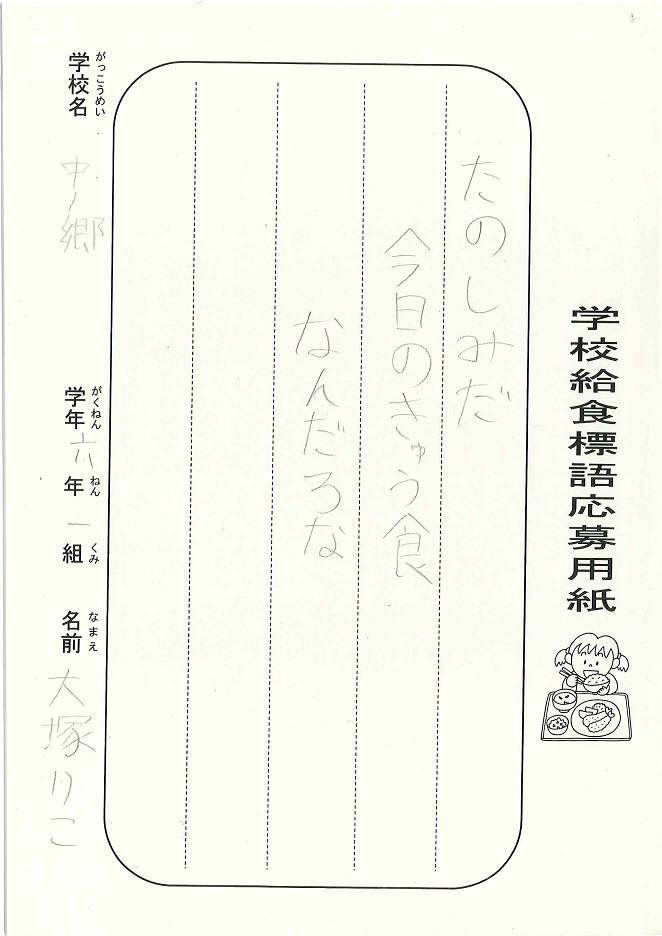 学校給食標語応募用紙
たのしみだ
今日のきゅう食
なんだろな
がっこうめい
学校名 中ノ郷
がくねん ねん くみ
学年 六 年 一 組
なまえ
名前 大塚りこ